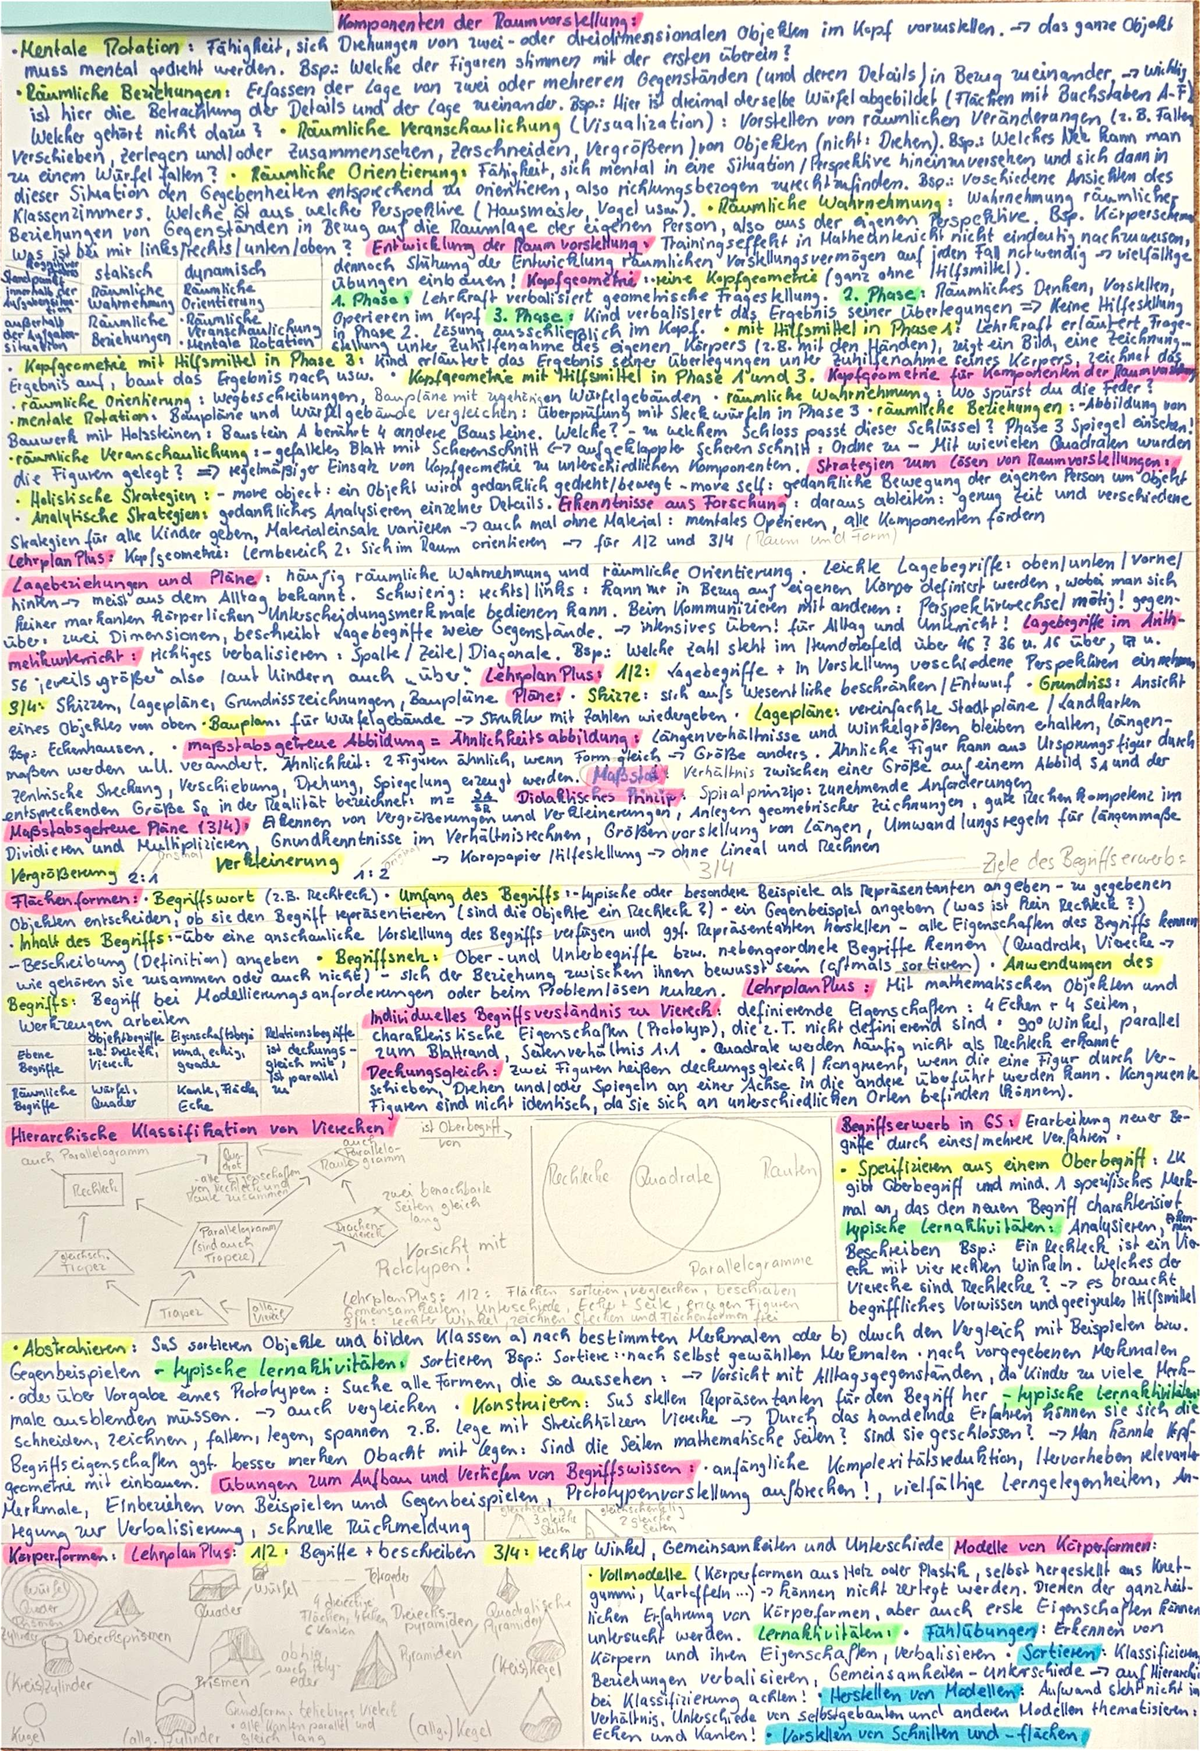 Komponenten der Raumvorstellung:
• Mentale Rotation: Fähigkeit, sich Drehungen von zwei- oder dreidimensionalen Objekten im Kopf vorzustellen. → das ganze Objekt
muss mental gedreht werden. Bsp.: Welche der Figuren stimmen mit der ersten überein?
• Räumliche Beziehungen: Erfassen der Lage von zwei oder mehreren Gegenständen (und deren Details) in Bezug zueinander, → wichtig
ist hier die Betrachtung der Details und der Lage zueinander. Bsp.: Hier ist dreimal derselbe Würfel abgebildet (Flächen mit Buchstaben A-F)
Welcher gehört nicht dazu? • Räumliche Veranschaulichung (Visualization): Vorstellen von räumlichen Veränderungen (z.B. Falten
Verschieben, Zerlegen und/oder Zusammensetzen, Zerschneiden, Vergrößern) von Objekten (nicht: Drehen). Bsp.: Welches Netz kann man
zu einem Würfel falten? • Räumliche Orientierung: Fähigkeit, sich mental in eine Situation/Perspektive hineinzuversetzen und sich dann in
dieser Situation den Gegebenheiten entsprechend zu orientieren, also richtungsbezogen zurechtzufinden. Bsp.: Verschiedene Ansichten des
Klassenzimmers. Welche ist aus welcher Perspektive (Hausmeister, Vogel usw.). • Räumliche Wahrnehmung: Wahrnehmung räumlicher
Beziehungen von Gegenständen in Bezug auf die Raumlage der eigenen Person, also aus der eigenen Perspektive. Bsp. Körperschema
Was ist bei mir links/rechts/unten/oben? Entwicklung der Raumvorstellung: Trainingseffekt in Matheunterricht nicht eindeutig nachzuweisen,
dennoch Stützung der Entwicklung räumlichen Vorstellungsvermögen auf jeden Fall notwendig → vielfältige
Übungen einbauen! Kopfgeometrie: • reine Kopfgeometrie (ganz ohne Hilfsmittel).
1. Phase: Lehrkraft verbalisiert geometrische Fragestellung. 2. Phase: Räumliches Denken, Vorstellen,
Operieren im Kopf 3. Phase: Kind verbalisiert das Ergebnis seiner Überlegungen ⇒ Keine Hilfestellung
in Phase 2. Lösung ausschließlich im Kopf. • mit Hilfsmittel in Phase 1: Lehrkraft erläutert Frage-
stellung unter Zuhilfenahme des eigenen Körpers (z.B. mit den Händen), zeigt ein Bild, eine Zeichnung...
statisch dynamisch
innerhalb der Räumliche Wahrnehmung Räumliche Orientierung
außerhalb der Räumliche Beziehungen • Räumliche Veranschaulichung • Mentale Rotation
• Kopfgeometrie mit Hilfsmittel in Phase 3: Kind erläutert das Ergebnis seiner Überlegungen unter Zuhilfenahme seines Körpers, zeichnet das
Ergebnis auf, baut das Ergebnis nach usw. • Kopfgeometrie mit Hilfsmittel in Phase 1 und 3. Kopfgeometrie für Komponenten der Raumvorstellung
• räumliche Orientierung: Wegbeschreibungen, Baupläne mit zugehörigen Würfelgebäuden • räumliche Wahrnehmung: Wo spürst du die Feder?
• mentale Rotation: Baupläne und Würfelgebäude vergleichen: Überprüfung mit Steckwürfeln in Phase 3 • räumliche Beziehungen: - Abbildung von
Bauwerk mit Holzsteinen: Baustein A berührt 4 andere Bausteine. Welche? - zu welchem Schloss passt dieser Schlüssel? Phase 3 Spiegel einsetzen!
• räumliche Veranschaulichung: - gefaltetes Blatt mit Scherenschnitt ↔ aufgeklappter Scherenschnitt: Ordne zu - Mit wievielen Quadraten wurden
die Figuren gelegt? ⇒ regelmäßiger Einsatz von Kopfgeometrie zu unterschiedlichen Komponenten. Strategien zum Lösen von Raumvorstellungen:
• Holistische Strategien: - move object: ein Objekt wird gedanklich gedreht/bewegt - move self: gedankliche Bewegung der eigenen Person um Objekt
• Analytische Strategien: gedankliches Analysieren einzelner Details. Erkenntnisse aus Forschung: daraus ableiten: genug Zeit und verschiedene
Strategien für alle Kinder geben, Materialeinsatz variieren → auch mal ohne Material: mentales Operieren, alle Komponenten fördern
LehrplanPlus: Kopfgeometrie: Lernbereich 2: Sich im Raum orientieren → für 1/2 und 3/4 (Raum und Form)
Lagebeziehungen und Pläne: häufig räumliche Wahrnehmung und räumliche Orientierung. Leichte Lagebegriffe: oben/unten/vorne/
hinten → meist aus dem Alltag bekannt. Schwierig: rechts/links: kann nur in Bezug auf eigenen Körper definiert werden, wobei man sich
keiner markanten körperlichen Unterscheidungsmerkmale bedienen kann. Beim Kommunizieren mit anderen: Perspektivwechsel nötig! gegen-
über: zwei Dimensionen, beschreibt Lagebegriffe zweier Gegenstände. → intensives Üben! für Alltag und Unterricht! Lagebegriffe im Arith-
metikunterricht: richtiges verbalisieren: Spalte/Zeile/Diagonale. Bsp.: Welche Zahl steht im Hundertafeld über 46? 36 u. 16 über,
56 "jeweils größer" also laut Kindern auch "über". LehrplanPlus: 1/2: Lagebegriffe + In Vorstellung verschiedene Perspektiven einnehmen
3/4: Skizzen, Lagepläne, Grundrisszeichnungen, Baupläne Pläne: • Skizze: sich aufs Wesentliche beschränken/Entwurf • Grundriss: Ansicht
eines Objektes von oben • Bauplan: für Würfelgebäude → Struktur mit Zahlen wiedergeben. • Lagepläne: vereinfachte Stadtpläne/Landkarten
Bsp: Eckenhausen. • maßstabsgetreue Abbildung = Ähnlichkeitsabbildung: Längenverhältnisse und Winkelgrößen bleiben erhalten, Längen-
maßen werden u.U. verändert. Ähnlichkeit: 2 Figuren ähnlich, wenn Form gleich → Größe anders. Ähnliche Figur kann aus Ursprungsfigur durch
zentrische Streckung, Verschiebung, Drehung, Spiegelung erzeugt werden. Maßstab: Verhältnis zwischen einer Größe auf einem Abbild SA und der
entsprechenden Größe SR in der Realität bezeichnet: m = SA/SR Didaktisches Prinzip: Spiralprinzip: zunehmende Anforderungen
Maßstabsgetreue Pläne (3/4): Erkennen von Vergrößerungen und Verkleinerungen, Anlegen geometrischer Zeichnungen, gute Rechenkompetenz im
Dividieren und Multiplizieren, Grundkenntnisse im Verhältnisrechnen, Größenvorstellung von Längen, Umwandlungsregeln für Längenmaße
Original Original
Vergrößerung 2:1 Verkleinerung 1:2 → Karopapier Hilfestellung → ohne Lineal und Rechnen
3/4 Ziele des Begriffserwerbs:
Flächenformen: • Begriffswort (z.B. Rechteck) • Umfang des Begriffs: - typische oder besondere Beispiele als Repräsentanten angeben - zu gegebenen
Objekten entscheiden, ob sie den Begriff repräsentieren (sind die Objekte ein Rechteck?) - ein Gegenbeispiel angeben (was ist kein Rechteck?)
• Inhalt des Begriffs: - über eine anschauliche Vorstellung des Begriffs verfügen und ggf. Repräsentanten herstellen - alle Eigenschaften des Begriffs kennen
- Beschreibung (Definition) angeben • Begriffsnetz: Ober- und Unterbegriffe bzw. nebengeordnete Begriffe kennen (Quadrate, Vierecke →
wie gehören sie zusammen oder auch nicht) - sich der Beziehung zwischen ihnen bewusst sein (oftmals sortieren) • Anwendungen des
Begriffs: Begriff bei Modellierungsanforderungen oder beim Problemlösen nutzen. LehrplanPlus: Mit mathematischen Objekten und
Werkzeugen arbeiten
Objektbegriffe Eigenschaftsbegr. Relationsbegriffe
Ebene Begriffe z.B. Dreieck, Viereck rund, eckig, gerade ist deckungsgleich mit, ist parallel zu
Räumliche Begriffe Würfel, Quader Kante, Fläche, Ecke
Individuelles Begriffsverständnis zu Viereck: definierende Eigenschaften: 4 Ecken + 4 Seiten,
charakteristische Eigenschaften (Prototyp), die z.T. nicht definierend sind • 90° Winkel, parallel
zum Blattrand, Seitenverhältnis 1:1 • Quadrate werden häufig nicht als Rechteck erkannt
Deckungsgleich: zwei Figuren heißen deckungsgleich/kongruent, wenn die eine Figur durch Ver-
schieben, Drehen und/oder Spiegeln an einer Achse in die andere überführt werden kann. Kongruente
Figuren sind nicht identisch, da sie sich an unterschiedlichen Orten befinden (können).
Hierarchische Klassifikation von Vierecken ist Oberbegriff von
auch Parallelogramm
Quadrat
- alle Eigenschaften von Rechteck und Raute zusammen
Raute
auch Parallelogramm
Rechteck
zwei benachbarte Seiten gleich lang
Parallelogramm (sind auch Trapeze)
Drachenviereck
gleichsch. Trapez
Vorsicht mit Prototypen!
Trapez
allg. Viereck
Rechtecke Quadrate Rauten
Parallelogramme
LehrplanPlus: 1/2: Flächen sortieren, vergleichen, beschreiben
Gemeinsamkeiten, Unterschiede, Ecke + Seite, erzeugen Figuren
3/4: rechter Winkel, zeichnen Strecken und Flächenformen frei
Begriffserwerb in GS: Erarbeitung neuer Be-
griffe durch eines/mehrere Verfahren:
• Spezifizieren aus einem Oberbegriff: LK
gibt Oberbegriff und mind. 1 spezifisches Merk-
mal an, das den neuen Begriff charakterisiert
typische Lernaktivitäten: Analysieren, Erkennen
Beschreiben Bsp.: Ein Rechteck ist ein Vier-
eck mit vier rechten Winkeln. Welches der
Vierecke sind Rechtecke? → es braucht
begriffliches Vorwissen und geeignetes Hilfsmittel
• Abstrahieren: SuS sortieren Objekte und bilden Klassen a) nach bestimmten Merkmalen oder b) durch den Vergleich mit Beispielen bzw.
Gegenbeispielen - typische Lernaktivitäten: sortieren Bsp.: Sortiere: • nach selbst gewählten Merkmalen • nach vorgegebenen Merkmalen
• oder über Vorgabe eines Prototypen: Suche alle Formen, die so aussehen: → Vorsicht mit Alltagsgegenständen, da Kinder zu viele Merk-
male ausblenden müssen. → auch vergleichen • Konstruieren: SuS stellen Repräsentanten für den Begriff her - typische Lernaktivitäten
schneiden, zeichnen, falten, legen, spannen z.B. Lege mit Streichhölzern Vierecke → Durch das handelnde Erfahren können sie sich die
Begriffseigenschaften ggf. besser merken Obacht mit Legen: Sind die Seiten mathematische Seiten? Sind sie geschlossen? → Man könnte Kopf-
geometrie mit einbauen. Übungen zum Aufbau und Vertiefen von Begriffswissen: • anfängliche Komplexitätsreduktion, Hervorheben relevanter
Merkmale, Einbeziehen von Beispielen und Gegenbeispielen, Prototypenvorstellung aufbrechen!, vielfältige Lerngelegenheiten, An-
regung zur Verbalisierung, schnelle Rückmeldung
gleichseitig 3 gleiche Seiten gleichschenkelig 2 gleiche Seiten
Körperformen: LehrplanPlus: 1/2: Begriffe + beschreiben 3/4: rechter Winkel, Gemeinsamkeiten und Unterschiede Modelle von Körperformen:
Würfel
Quader
Prismen
Zylinder
Dreiecksprismen
Quader
Würfel
Tetraeder
4 dreieckige Flächen, 4 Ecken 6 Kanten
Dreieckspyramiden
Quadratische Pyramiden
(Kreis)Zylinder
Prismen
Pyramiden
(Kreis)Kegel
Grundform: beliebiges Vieleck
• alle Kanten parallel und gleich lang
Kugel
(allg.) Zylinder
(allg.) Kegel
• Vollmodelle (Körperformen aus Holz oder Plastik, selbst hergestellt aus Knet-
gummi, Kartoffeln...) → können nicht zerlegt werden. Dienen der ganzheit-
lichen Erfahrung von Körperformen, aber auch erste Eigenschaften können
untersucht werden. Lernaktivitäten: • Fühlübungen: Erkennen von
Körpern und ihren Eigenschaften, Verbalisieren • Sortieren: Klassifizieren,
Beziehungen verbalisieren, Gemeinsamkeiten - Unterschiede → auf Hierarchi
bei Klassifizierung achten! • Herstellen von Modellen: Aufwand steht nicht in
Verhältnis. Unterschiede von selbstgebauten und anderen Modellen thematisieren:
Ecken und Kanten! • Vorstellen von Schnitten und -flächen